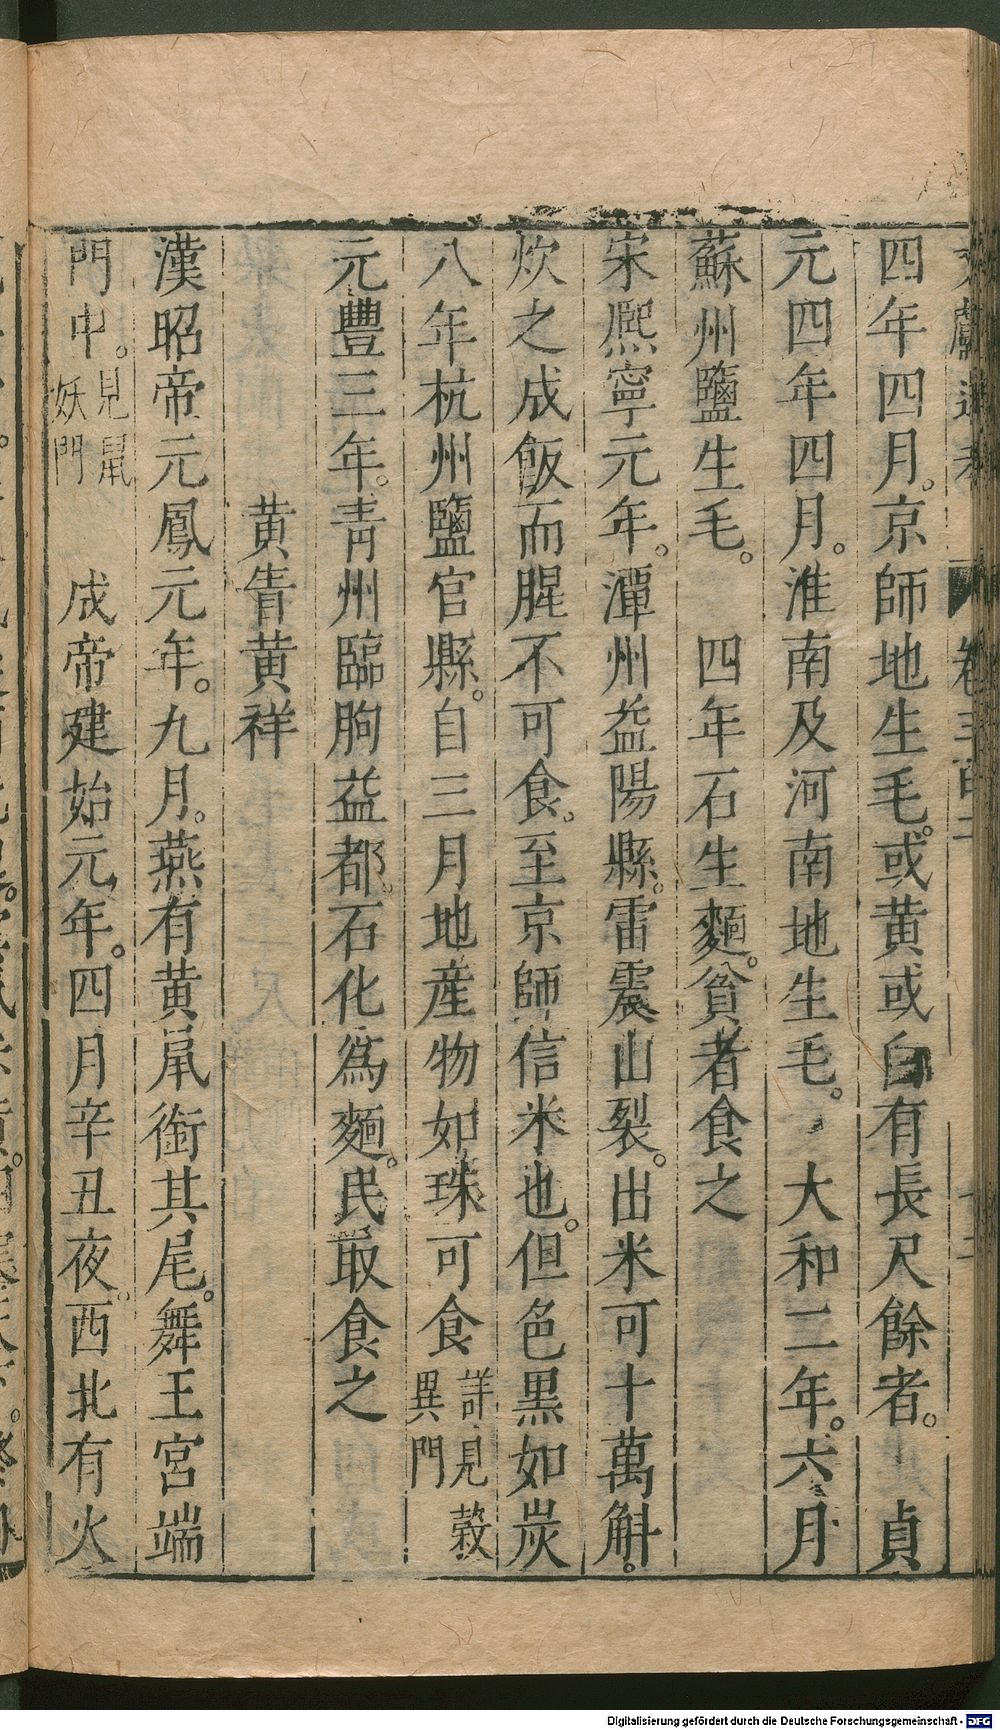 四年四月。京師地生毛。或黄或白有長尺餘者。　貞
元四年四月。淮南及河南地生毛。　大和二年。六月
蘇州鹽生毛。　四年石生麵。貧者食之
宋熈寧元年。潭州益陽縣。雷震山裂。出米可十萬斛。
炊之成飯而腥不可食。至京師信米也。但色黒如炭
八年杭州鹽官縣。自三月地産物如珠可食詳見穀異門
元豐三年。青州臨朐益都。石化爲麵。民取食之
黄眚黄祥
漢昭帝元鳳元年。九月。燕有黄鼠銜其尾。舞王宮端
門中。見鼠妖門　成帝建始元年。四月辛丑夜。西北有火
卷三百二
Digitalisierung gefördert durch die Deutsche Forschungsgemeinschaft - DFG